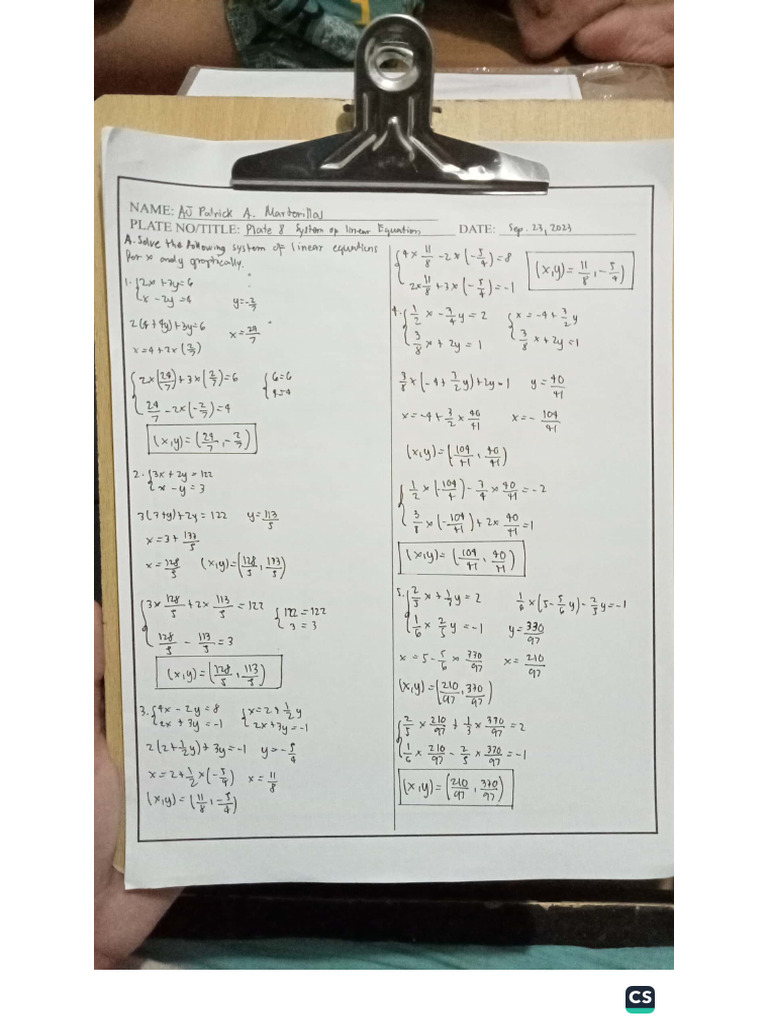 NAME: AJ Patrick A. Martorillas
PLATE NO/TITLE: Plate 8 System of linear Equation DATE: Sep. 23, 2023
A. Solve the following system of linear equations
for x andy graphically.
1. {2x + 3y = 6
x - 2y = 4 y = -2/7
2(4+4y)+3y=6 x = 24/7
x = 4+2x(2/7)
{2x(24/7)+3x(2/7)=6 {6=6
24/7 - 2x(-2/7)=4 4=4
(x,y) = (24/7, -2/7)
2. {3x + 2y = 122
x - y = 3
3(3+y)+2y = 122 y = 113/5
x = 3 + 113/5
x = 128/5 (x,y) = (128/5, 113/5)
{3x 128/5 + 2x 113/5 = 122 {122 = 122
128/5 - 113/5 = 3 3 = 3
(x,y) = (128/5, 113/5)
3. {4x - 2y = 8 {x = 2+1/2y
2x + 3y = -1 2x+3y=-1
2(2+1/2y)+3y=-1 y = -5/4
x = 2+1/2x(-5/4) x = 11/8
(x,y) = (11/8, -5/4)
{4x 11/8 - 2x(-5/4) = 8
2x 11/8 + 3x(-5/4) = -1
(x,y) = (11/8, -5/4)
4. {1/2 x - 3/4 y = 2 {x = -4+3/2y
3/8 x + 2y = 1 3/8 x + 2y = 1
3/8 x(-4+3/2y)+2y=1 y = 40/41
x = -4+3/2 x 40/41 x = -104/41
(x,y) = (104/41, 40/41)
{1/2 x(-104/4) - 3/4 x 40/41 = -2
3/8 x(-104/41) + 2x 40/41 = 1
(x,y) = (104/41, 40/41)
5. {2/5 x + 1/3 y = 2 1/6 x(5 - 5/6 y) - 2/5 y = -1
1/6 x 2/5 y = -1 y = 330/97
x = 5 - 5/6 x 330/97 x = 210/97
(x,y) = (210/97, 330/97)
{2/5 x 210/97 + 1/3 x 330/97 = 2
1/6 x 210/97 - 2/5 x 330/97 = -1
(x,y) = (210/97, 330/97)
CS